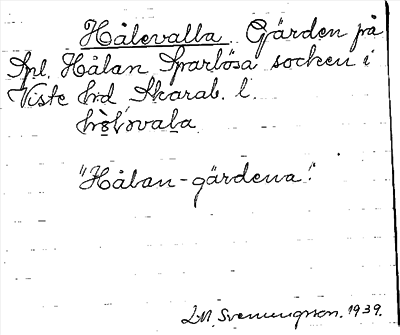 Hålevalla. Gärden på
Spl. Hålan Sparlösa socken i
Viste hd, Skarab. l.
"Hålan-gärdena".
L.M. Svenungsson. 1939.